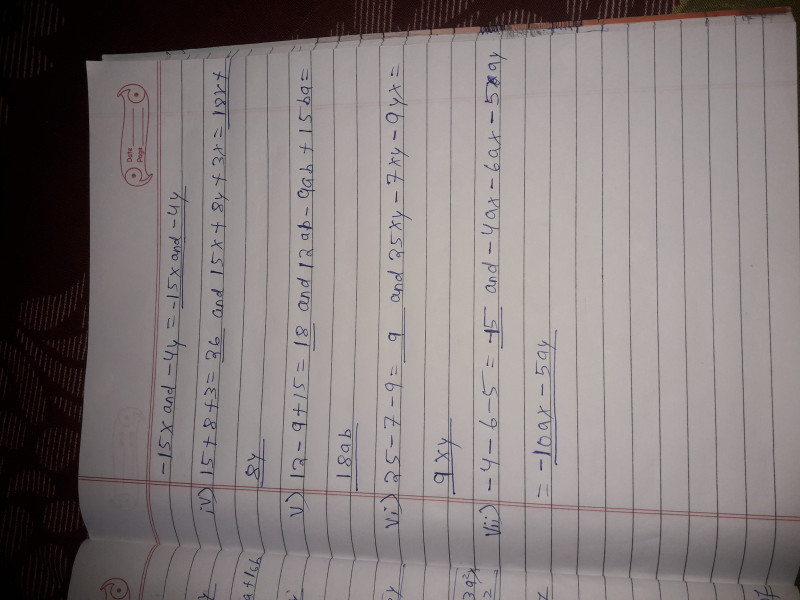 Date
Page
-15x and -4y = -15x and -4y
iv) 15+8+3=26 and 15x+8y+3x=18x+
8y
v) 12-9+15=18 and 12ab-9ab+15ba=
18ab
vi) 25-7-9=9 and 25xy-7xy-9yx=
9xy
vii) -4-6-5=-15 and -4ax-6ax-5ay
= -10ax-5ay